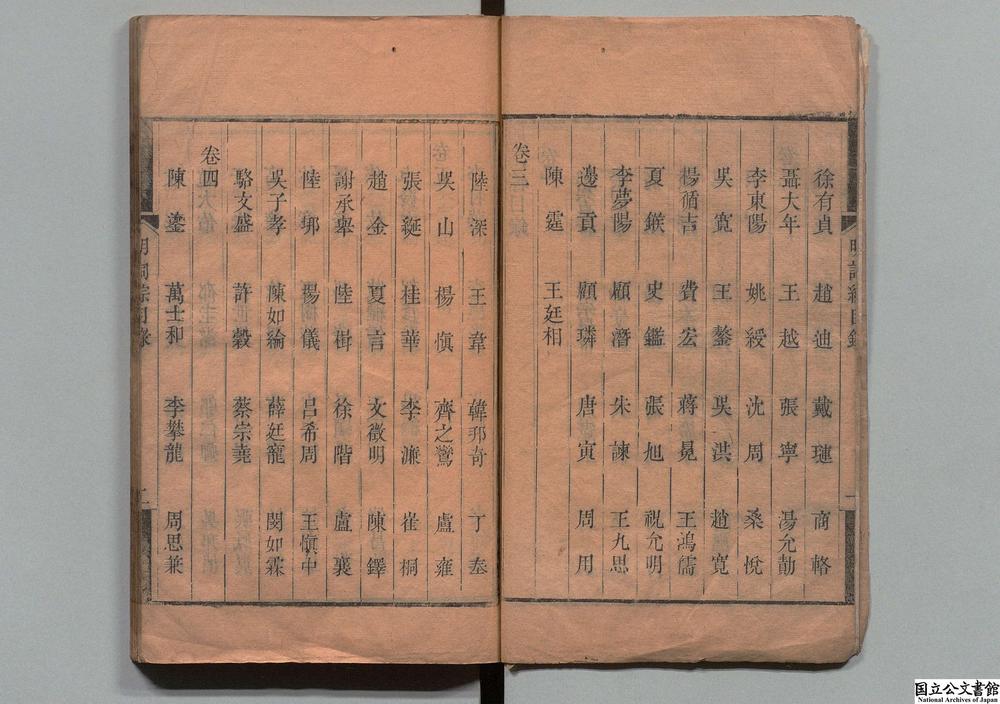 徐有貞 趙迪 戴璉 商輅
聶大年 王越 張寧 湯允勣
李東陽 姚綬 沈周 桑悅
吳寬 王鏊 吳洪 趙寬
楊循吉 費宏 蔣冕 王鴻儒
夏鍭 史鑑 張旭 祝允明
李夢陽 顧潛 朱諫 王九思
邊貢 顧璘 唐寅 周用
陳霆 王廷相
卷三
陸深 王韋 韓邦奇 丁奉
吳山 楊慎 齊之鸞 盧雍
張綖 桂華 李濂 崔桐
趙金 夏言 文徵明 陳鐸
謝承舉 陸楫 徐階 盧襄
陸埰 楊儀 呂希周 王愼中
吳子孝 陳如綸 薛廷寵 閔如霖
駱文盛 許穀 蔡宗堯
卷四
陳鎏 萬士和 李攀龍 周思兼
明詞綜目錄 二
国立公文書館
National Archives of Japan